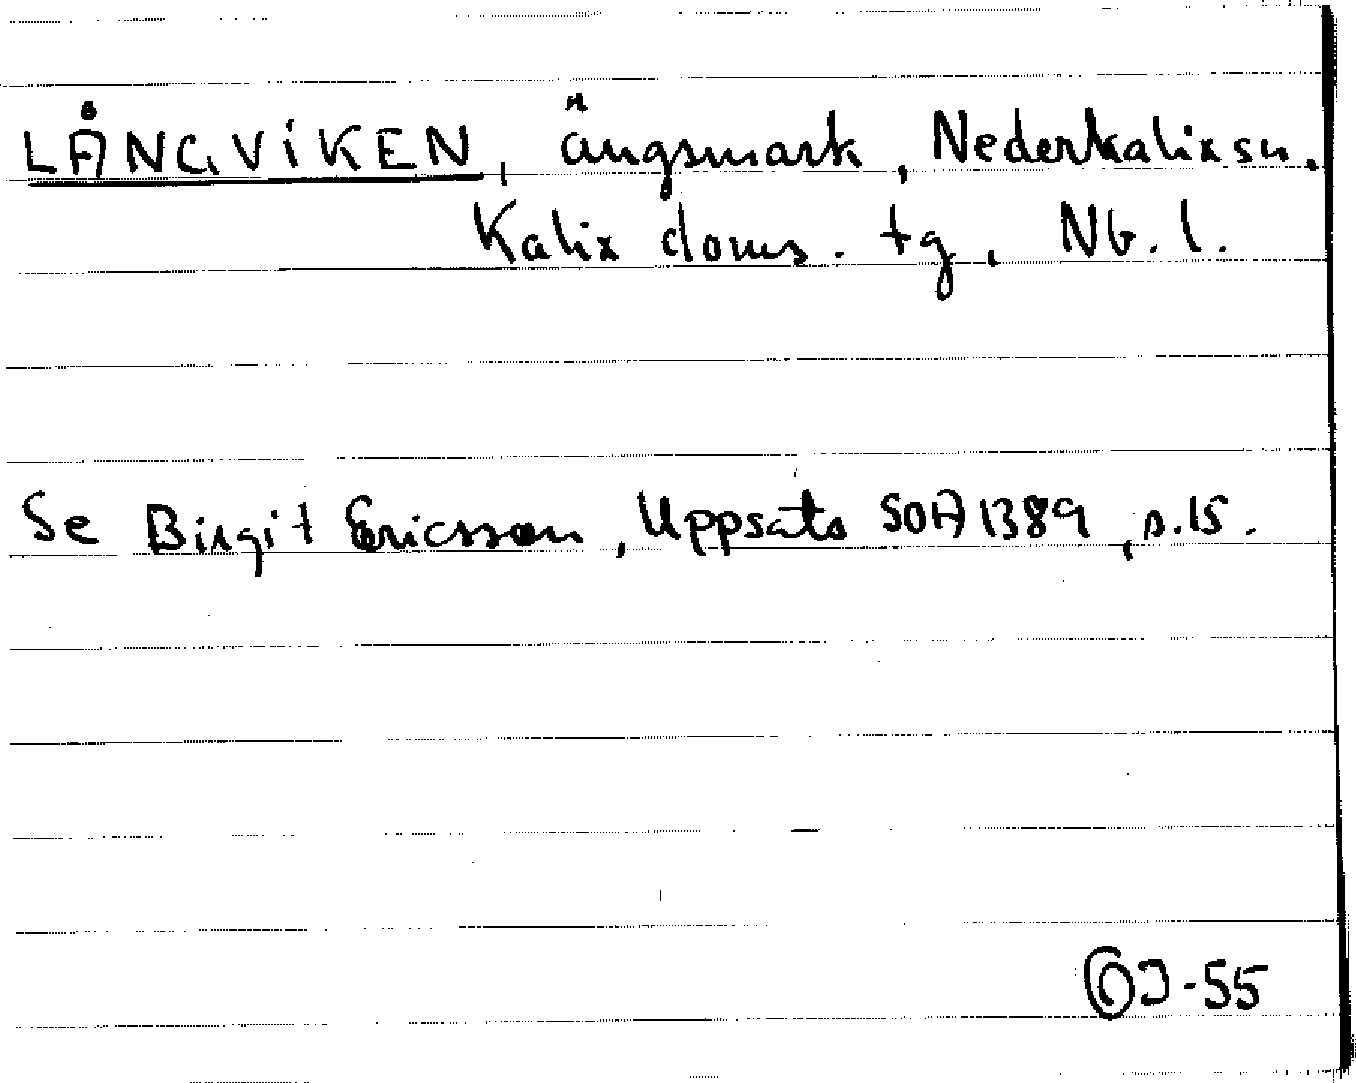 LÅNGVIKEN, ängsmark, Nederkalix sn.
Kalix doms. tg, Nb. l.
Se Birgit Ericsson, Uppsats SOA 1389, s. 15.